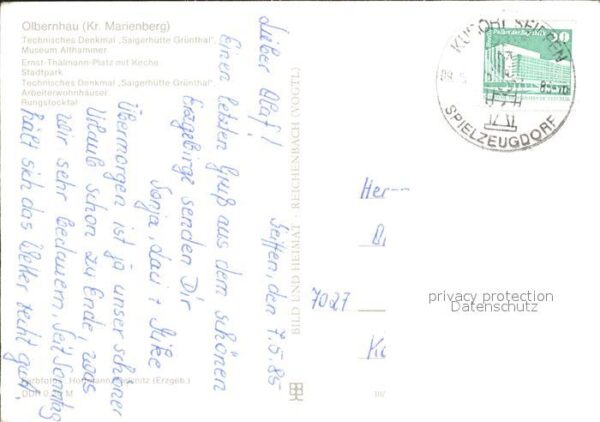 Olbernhau (Kr. Marienberg)
Technisches Denkmal „Saigerhütte Grünthal",
Museum Althammer
Ernst-Thälmann-Platz mit Kirche
Stadtpark
Technisches Denkmal „Saigerhütte Grünthal"
Arbeiterwohnhäuser
Rungstocktal
Seiffen, den 7.5.85
Lieber Olaf!
Einen letzten Gruß aus dem schönen
Erzgebirge senden Dir
Sonja, Laci + Silke
Übermorgen ist ja unser schöner
Urlaub schon zu Ende, was
wir sehr bedauern. Seit Sonntag
hält sich das Wetter recht gut.
BILD UND HEIMAT · REICHENBACH (VOGTL)
KURORT SEIFFEN
SPIELZEUGDORF
Palast der Republik
10
Her
7027
privacy protection
Datenschutz
DDR M